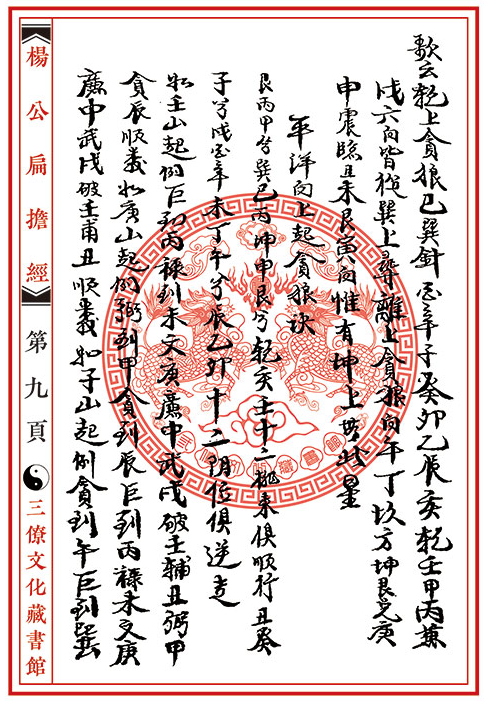 歌云乾上貪狼巳巽針酉辛子癸卯乙辰亥乾壬甲丙兼
戌六向皆從巽上尋離上貪狼向午丁坎方坤艮兌庚
申震臨丑未艮寅向惟有坤上無此星
平洋向上起貪狼訣
艮丙甲兮巽巳丙坤申艮兮乾亥壬十二挑來俱順行丑癸
子兮戌酉辛未丁午兮辰乙卯十二陰位俱逆走
如壬山起例巨到丙祿到未文庚廉中武戌破壬輔丑弼甲
貪辰順裝如庚山起例弼到甲貪到辰巨到丙祿未文庚
廉中武戌破壬甫丑順裝如子山起例貪到午巨到巽
楊公扁擔經
第九頁
三僚文化藏書館